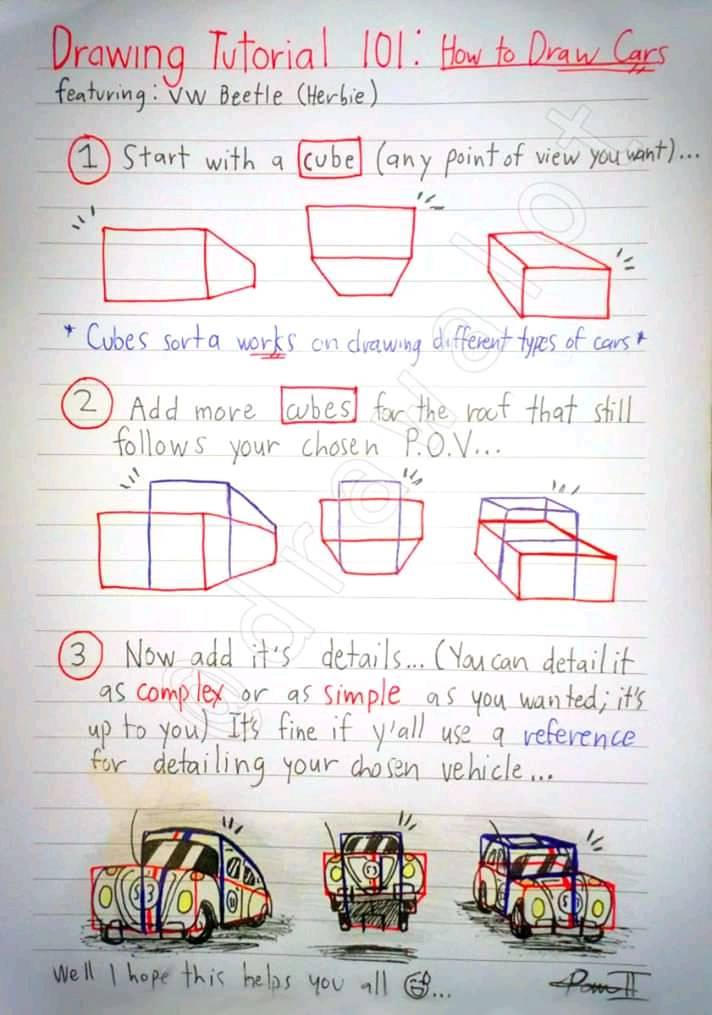 Drawing Tutorial 101: How to Draw Cars
featuring: VW Beetle (Herbie)
1 Start with a cube (any point of view you want)...
* Cubes sorta works on drawing different types of cars *
2 Add more cubes for the roof that still
follows your chosen P.O.V...
3 Now add it's details... (You can detail it
as complex or as simple as you wanted; it's
up to you) It's fine if y'all use a reference
for detailing your chosen vehicle...
53
53
53
Well I hope this helps you all ...
@drawalot.